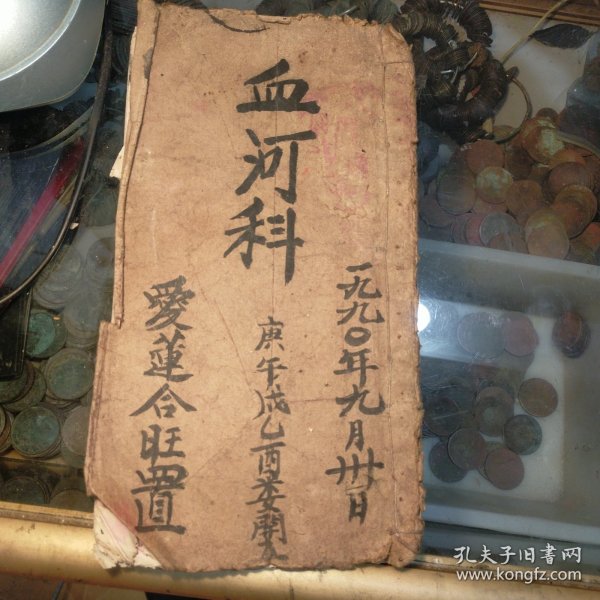 血河科
一九九〇年九月卅日
庚午戌乙酉委開文
愛蓮合旺置
孔夫子旧书网
www.kongfz.com